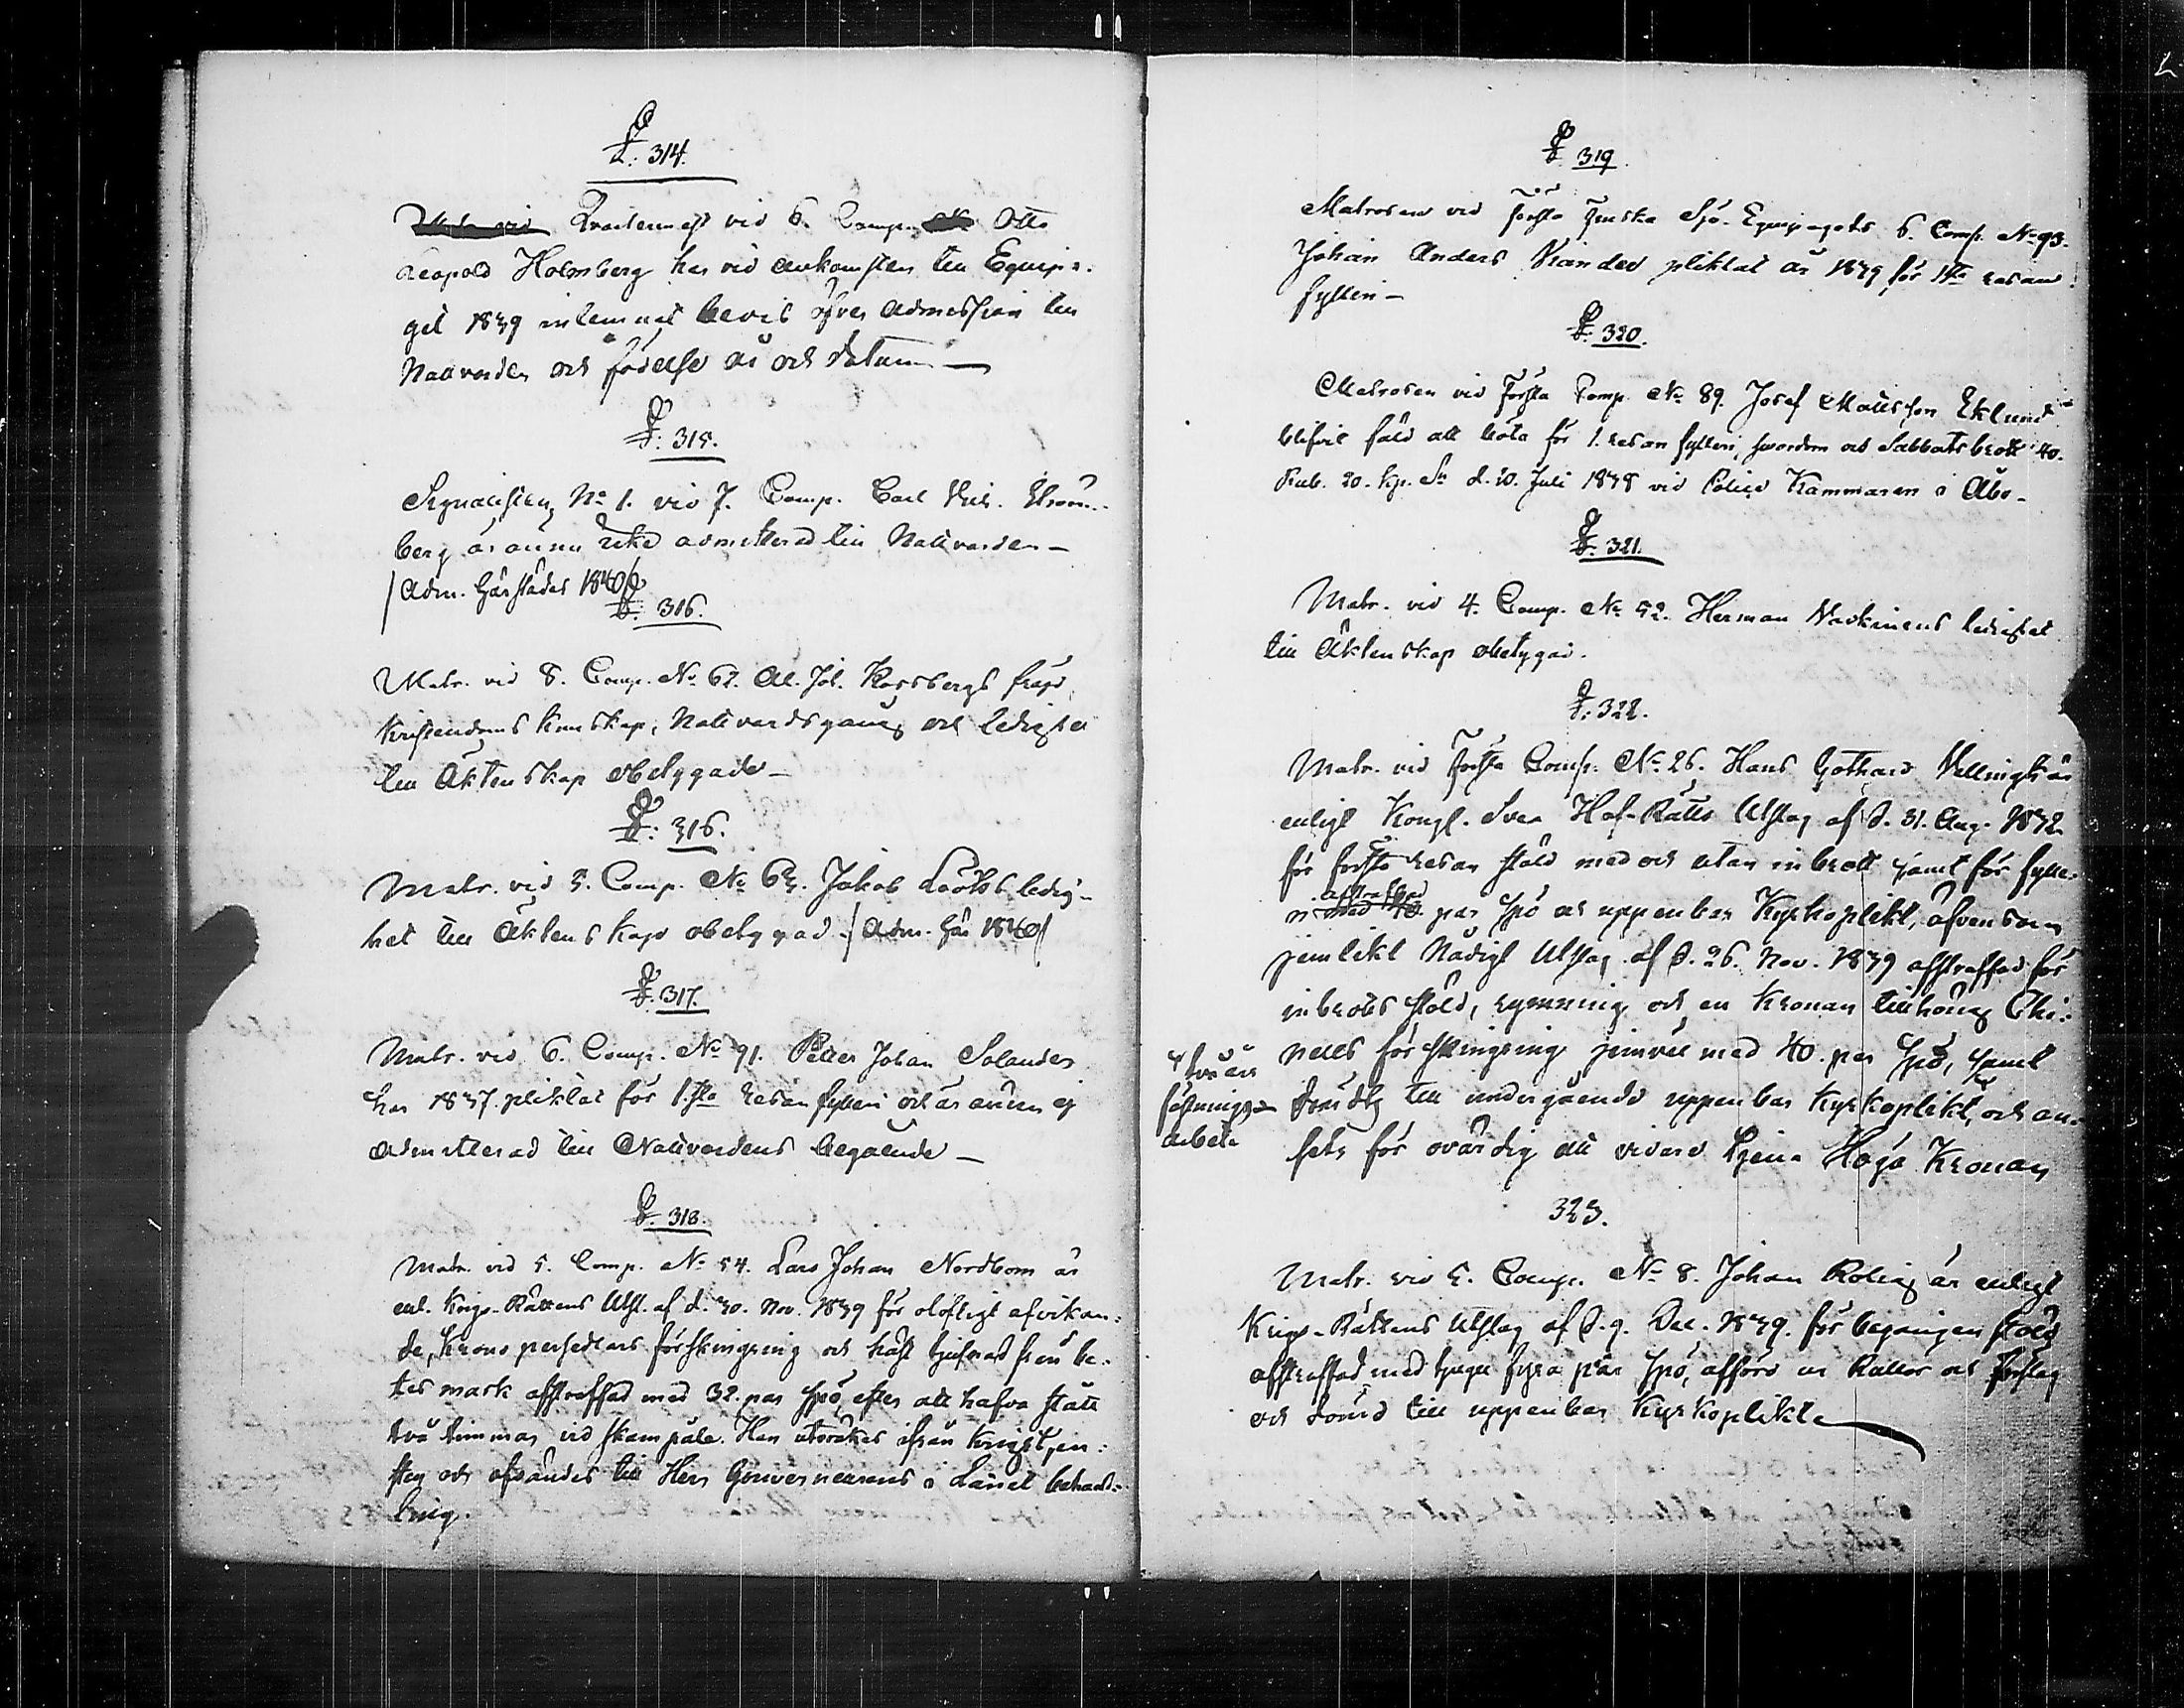 §. 314.
Qvartermest vid 6. Comp. Otto
Leopold Holmberg har vid ankomsten till Equipa-
get 1839 inlemnat bevis öfver admission till
Nattvarden och födelse år och datum —
§: 315.
Signalisten No 1. vid 7. Comp. Carl Vilh. Strom-
berg är ännu icke admitterad till Nattvarden —
/ Adm. härstädes 1840 /
§: 316.
Matr. vid 8. Comp. No 62. Al. Joh. Korsbergs
Kristendoms kunskap, Nattvardsgång och ledighet
till Äktenskap obetygade —
§: 316.
Matr. vid 5. Comp. No 65. Jakob ledig-
het till Äktenskap obetygad. / Adm. här 1840 /
§. 317.
Matr. vid 6. Comp. No 91. Petter Johan Solander
har 1837. pliktat för 1.sta resan fylleri och är ännu ej
admitterad till Nattvardens begående —
§. 318.
Matr. vid 5. Comp. No 54. Lars Johan Nordbom är
enl. Krigs-Rättens Utsl. af d. 30. Nov. 1839 för olofligt afvikan-
de, Krono persedlars förskingring och häst tjufnad från be-
tes mark afstraffad med 32. par spö, efter att hafva stått
två timmar vid skampåle. Han utvräkes ifrån Krigstjen-
sten och afsändes till Herr Gouverneurens i Länet behand-
ling.
§. 319.
Matrosen vid Första Finska Sjö-Equipagets 6. Comp. No 93.
Johan Anders Viander pliktat år 1839 för 1sta resan
fylleri —
§: 320.
Matrosen vid Första Comp. No 89. Josef Mattsson Eklund
blifvit fäld att böta för 1. resan fylleri, svordom och Sabbatsbrott 40.
Rub. 20. kp. Sr d. 20. Juli 1838 vid Police Kammaren i Åbo —
§: 321.
Matr. vid 4. Comp. No 52. Herman ledighet
till Äktenskap obetygad.
§: 322.
Matr. vid Första Comp. No 26. Hans Gothard Vellingk är
enligt Kongl. Svea Hof-Rätts Utslag af d. 31. Aug. 1832
för första resan stöld med och utan inbrott samt för fylle-
ri afstraffad med 40. par spö och uppenbar Kyrkoplikt, äfvensom
jemlikt Nådigt Utslag af d. 26. Nov. 1839 afstraffad för
inbrotts stöld, rymning och en Kronan tillhörig Chi-
nells förskingring jemväl med 40. par spö, samt
dömd till undergående uppenbar Kyrkoplikt, och an-
sets för ovärdig att vidare tjena Höga Kronan
två års
fästnings-
arbete
323.
Matr. vid 5. Comp. No 8. Johan Rolig är enligt
Krigs-Rättens Utslag af d. 9. Dec. 1839. för begången stöld
afstraffad med tjugu fyra par spö, afförd ur Rullor och Förslag
och dömd till uppenbar Kyrkoplikt